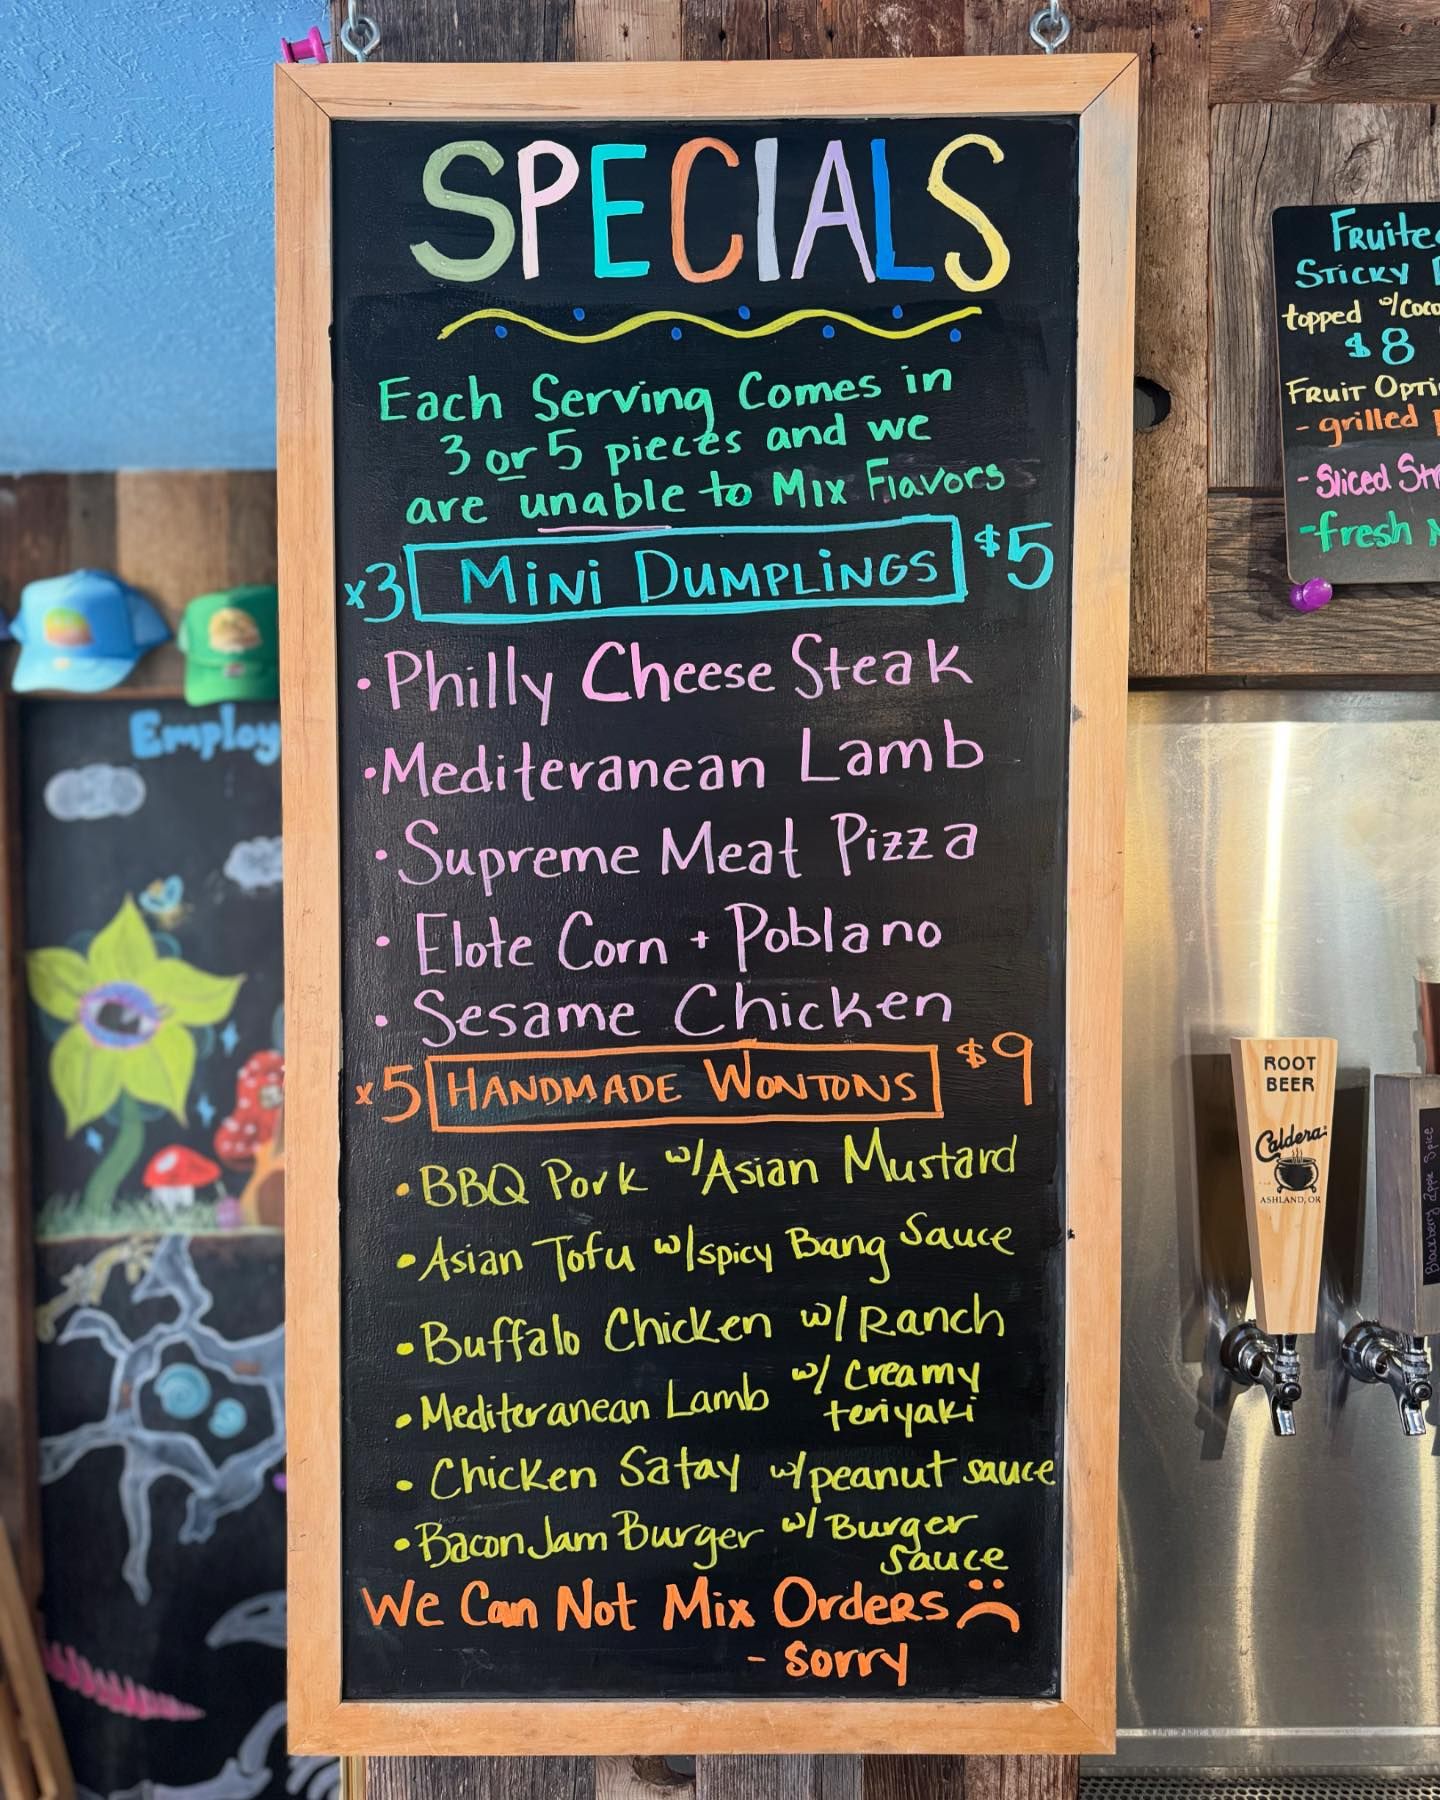 SPECIALS
Each Serving Comes in
3 or 5 pieces and we
are unable to Mix Flavors
x3 MiNi DUMPLiNGS $5
• Philly Cheese Steak
• Mediteranean Lamb
• Supreme Meat Pizza
• Elote Corn + Poblano
• Sesame Chicken
x5 HANDMADE WONTONS $9
• BBQ Pork w/Asian Mustard
• Asian Tofu w/spicy Bang Sauce
• Buffalo Chicken w/ Ranch
• Mediteranean Lamb w/ Creamy
teriyaki
• Chicken Satay w/peanut sauce
• Bacon Jam Burger w/ Burger
Sauce
We Can Not Mix Orders
- Sorry
STICKY
topped w/
$8
FRUIT
- grilled
- Sliced
- fresh
ROOT
BEER
Caldera
ASHLAND, OR